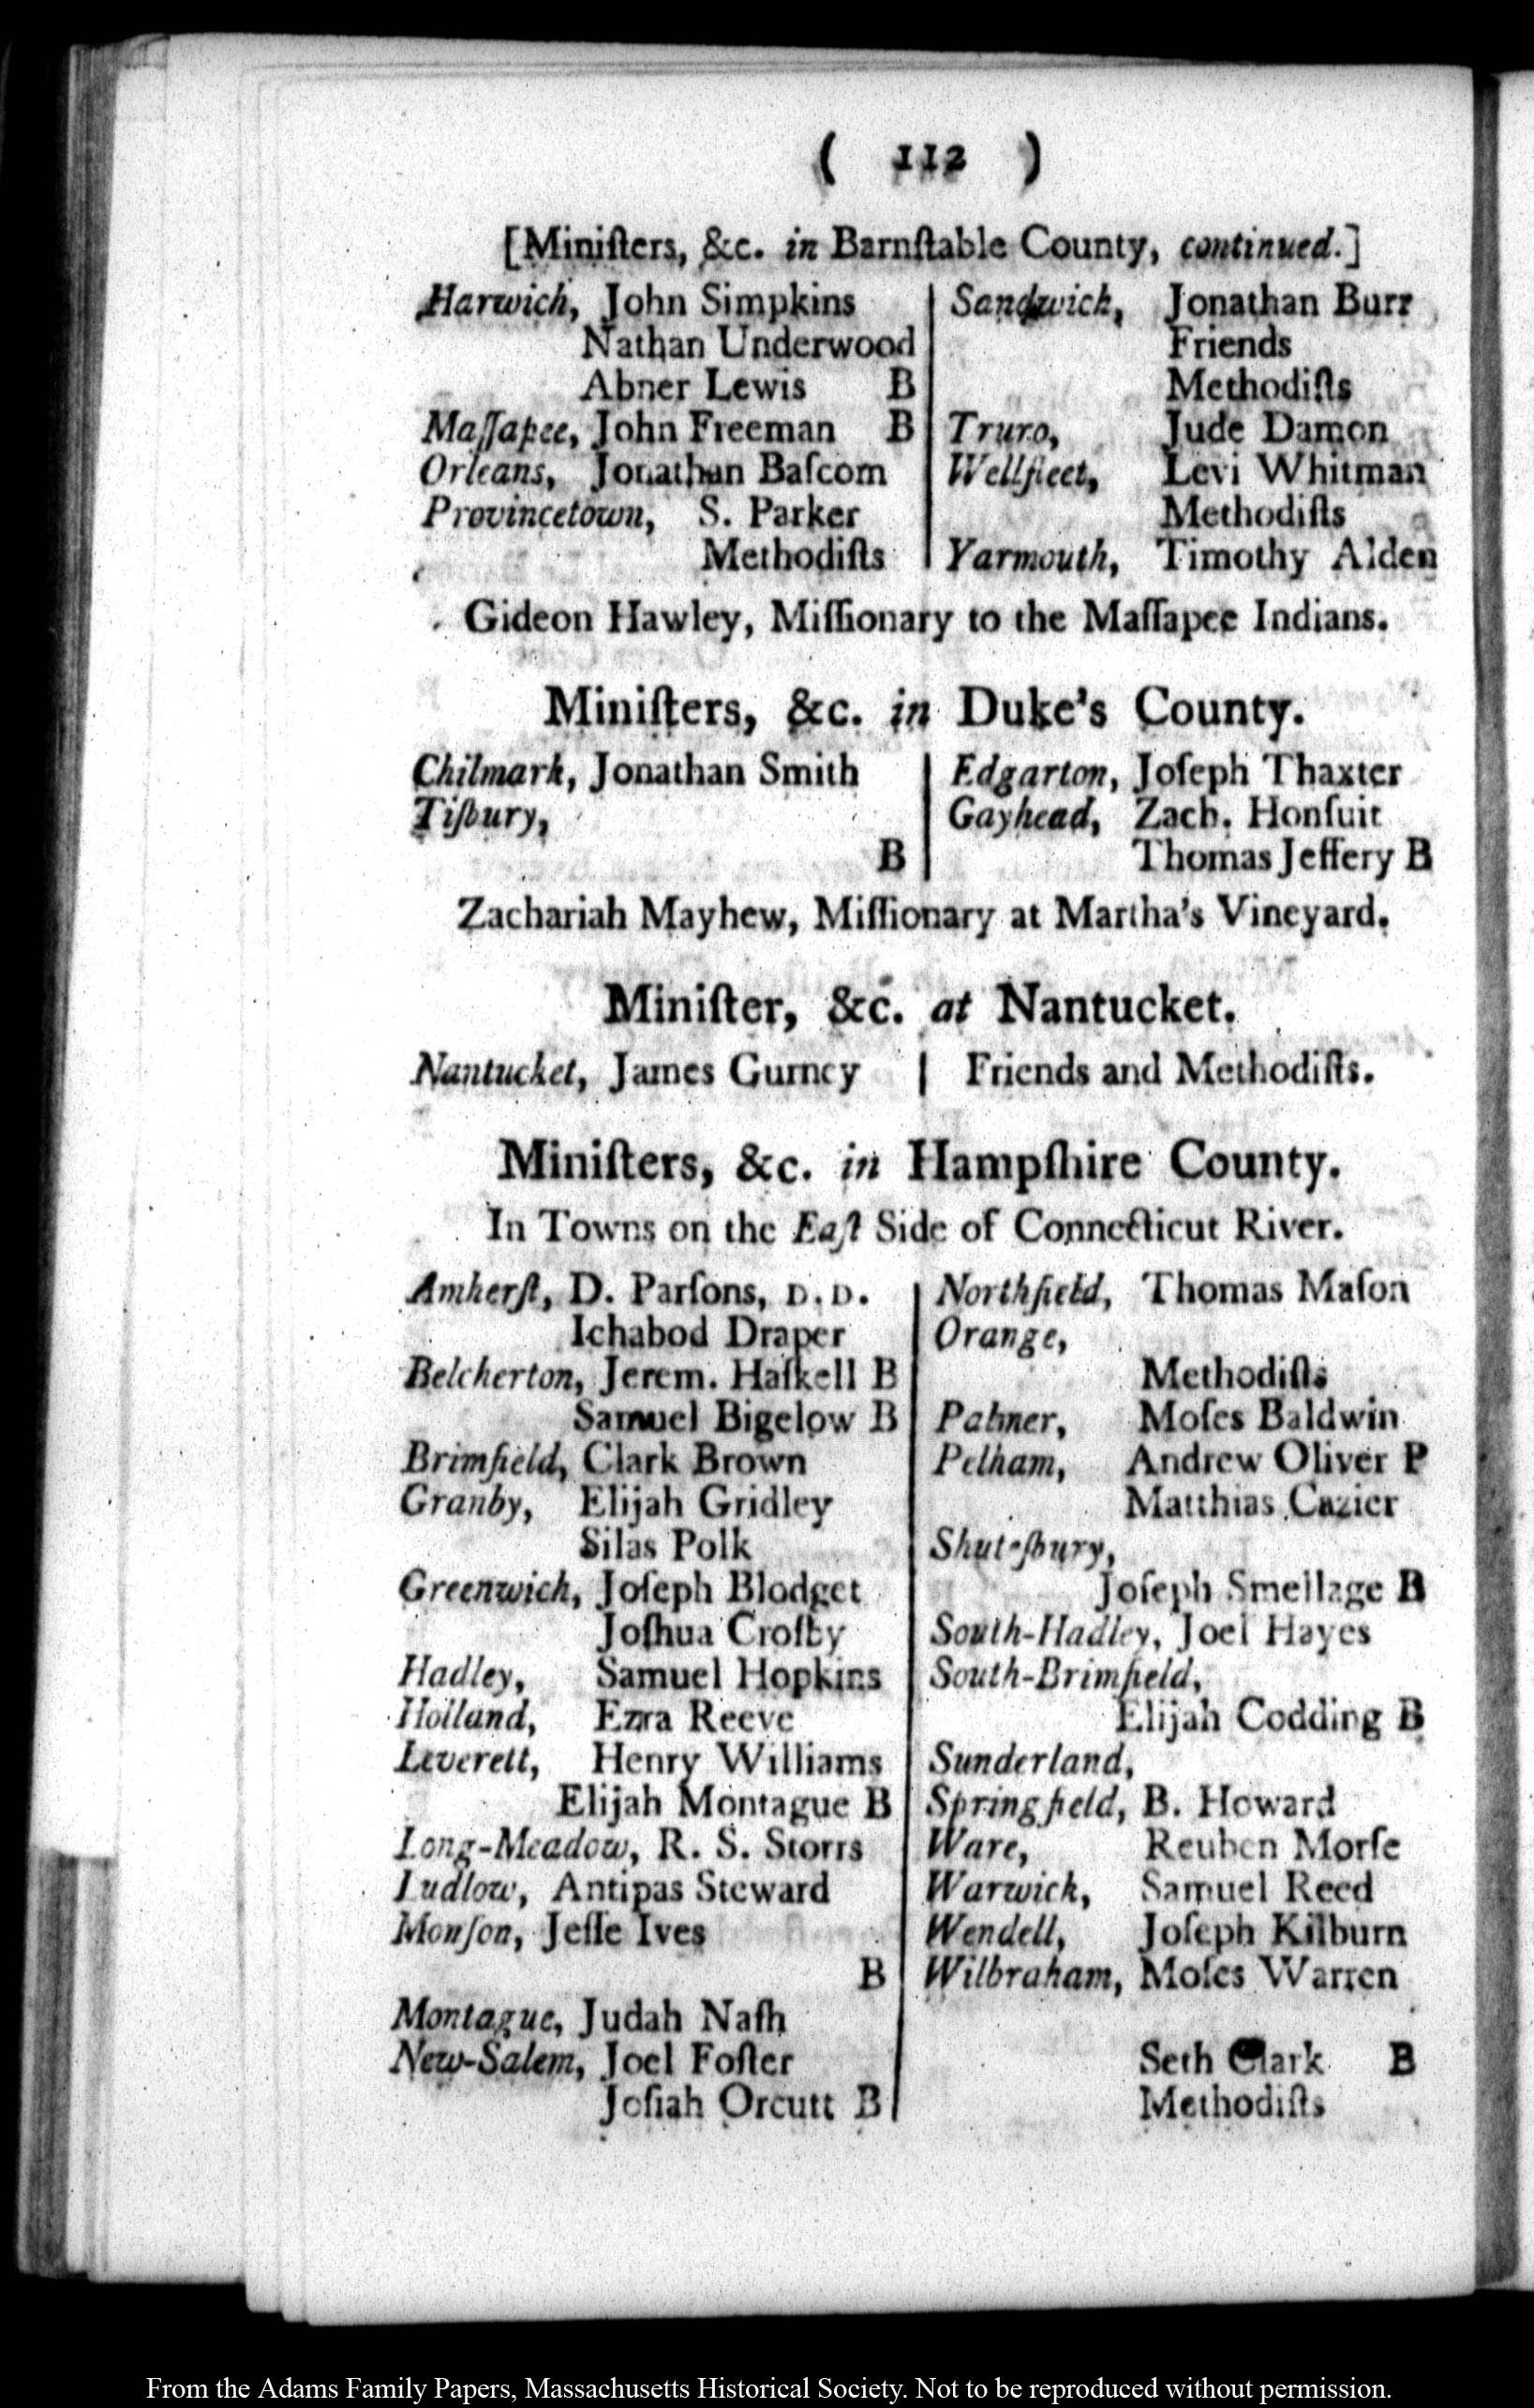 ( 112 )
[Miniſters, &c. in Barnſtable County, continued.]
Harwich, John Simpkins
Nathan Underwood
Abner Lewis B
Maſſapee, John Freeman B
Orleans, Jonathan Baſcom
Provincetown, S. Parker
Methodiſts
Sandwich, Jonathan Burr
Friends
Methodiſts
Truro, Jude Damon
Wellfleet, Levi Whitman
Methodiſts
Yarmouth, Timothy Alden
Gideon Hawley, Miſſionary to the Maſſapee Indians.
Miniſters, &c. in Duke's County.
Chilmark, Jonathan Smith
Tiſbury,
B
Edgarton, Joſeph Thaxter
Gayhead, Zach. Honſuit
Thomas Jeffery B
Zachariah Mayhew, Miſſionary at Martha's Vineyard.
Miniſter, &c. at Nantucket.
Nantucket, James Gurney | Friends and Methodiſts.
Miniſters, &c. in Hampſhire County.
In Towns on the Eaſt Side of Connecticut River.
Amherſt, D. Parſons, D. D.
Ichabod Draper
Belcherton, Jerem. Haſkell B
Samuel Bigelow B
Brimfield, Clark Brown
Granby, Elijah Gridley
Silas Polk
Greenwich, Joſeph Blodget
Joſhua Croſby
Hadley, Samuel Hopkins
Holland, Ezra Reeve
Leverett, Henry Williams
Elijah Montague B
Long-Meadow, R. S. Storrs
Ludlow, Antipas Steward
Monſon, Jeſſe Ives
B
Montague, Judah Naſh
New-Salem, Joel Foſter
Joſiah Orcutt B
Northfield, Thomas Maſon
Orange,
Methodiſts
Palmer, Moſes Baldwin
Pelham, Andrew Oliver P
Matthias Cazier
Shuteſbury,
Joſeph Smellage B
South-Hadley, Joel Hayes
South-Brimfield,
Elijah Codding B
Sunderland,
Springfield, B. Howard
Ware, Reuben Morſe
Warwick, Samuel Reed
Wendell, Joſeph Kilburn
Wilbraham, Moſes Warren
Seth Clark B
Methodiſts
From the Adams Family Papers, Massachusetts Historical Society. Not to be reproduced without permission.